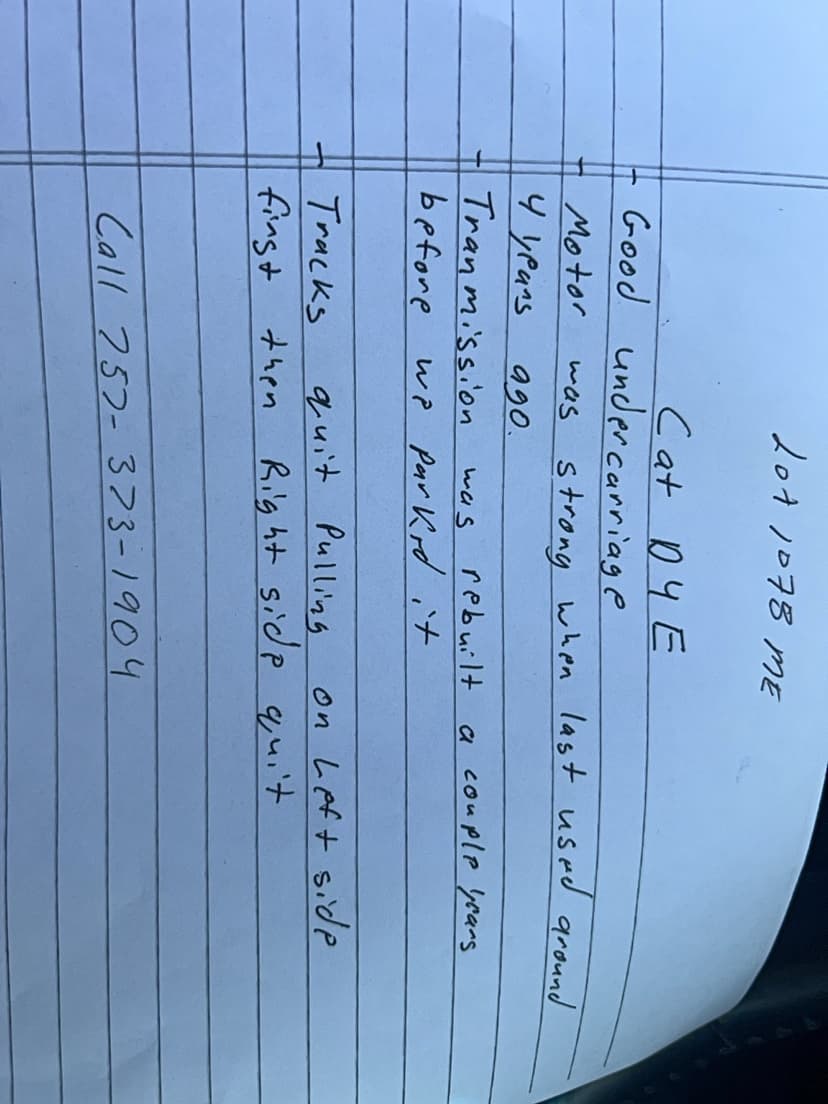 Lot 1078 ME
Cat D4E
- Good undercarriage
- Motor was strong when last used around
4 years ago.
- Tranmission was rebuilt a couple years
before we parkd it
- Tracks quit Pulling on Left side
first then Right side quit
Call 757-373-1904